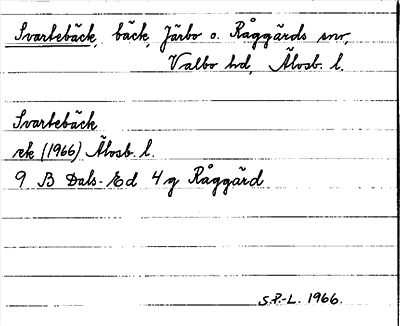 Svartebäck, bäck, Järbo o. Råggärds snr,
Valbo hd, Älvsb. l.
Svartebäck
ek (1966) Älvsb. l.
9 B Dals-Ed 4g Råggärd
S.P.-L. 1966.